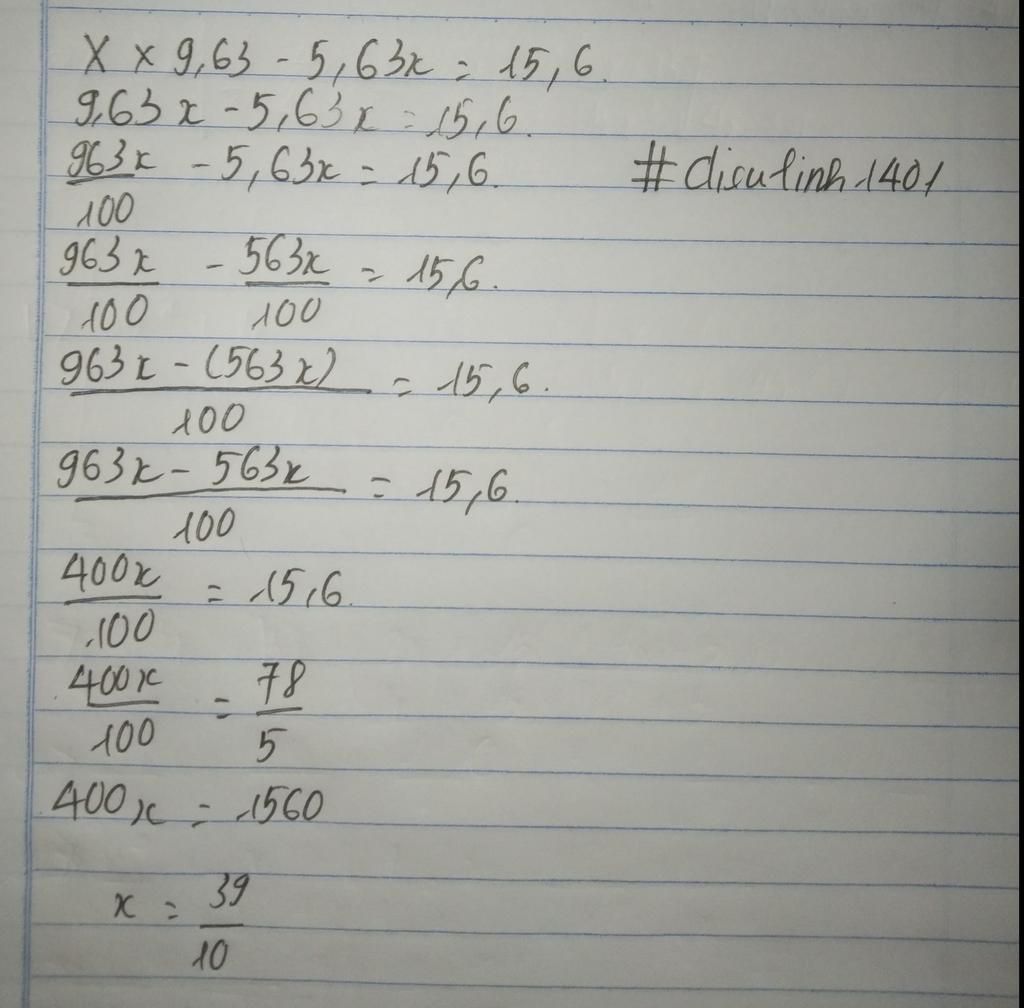 X x 9,63 - 5,63x = 15,6.
9,63x - 5,63x = 15,6.
963x/100 - 5,63x = 15,6.
#disulinh1401
963x/100 - 563x/100 = 15,6.
963x - (563x)/100 = 15,6.
963x - 563x/100 = 15,6.
400x/100 = 15,6.
400x/100 = 78/5
400x = 1560
x = 39/10